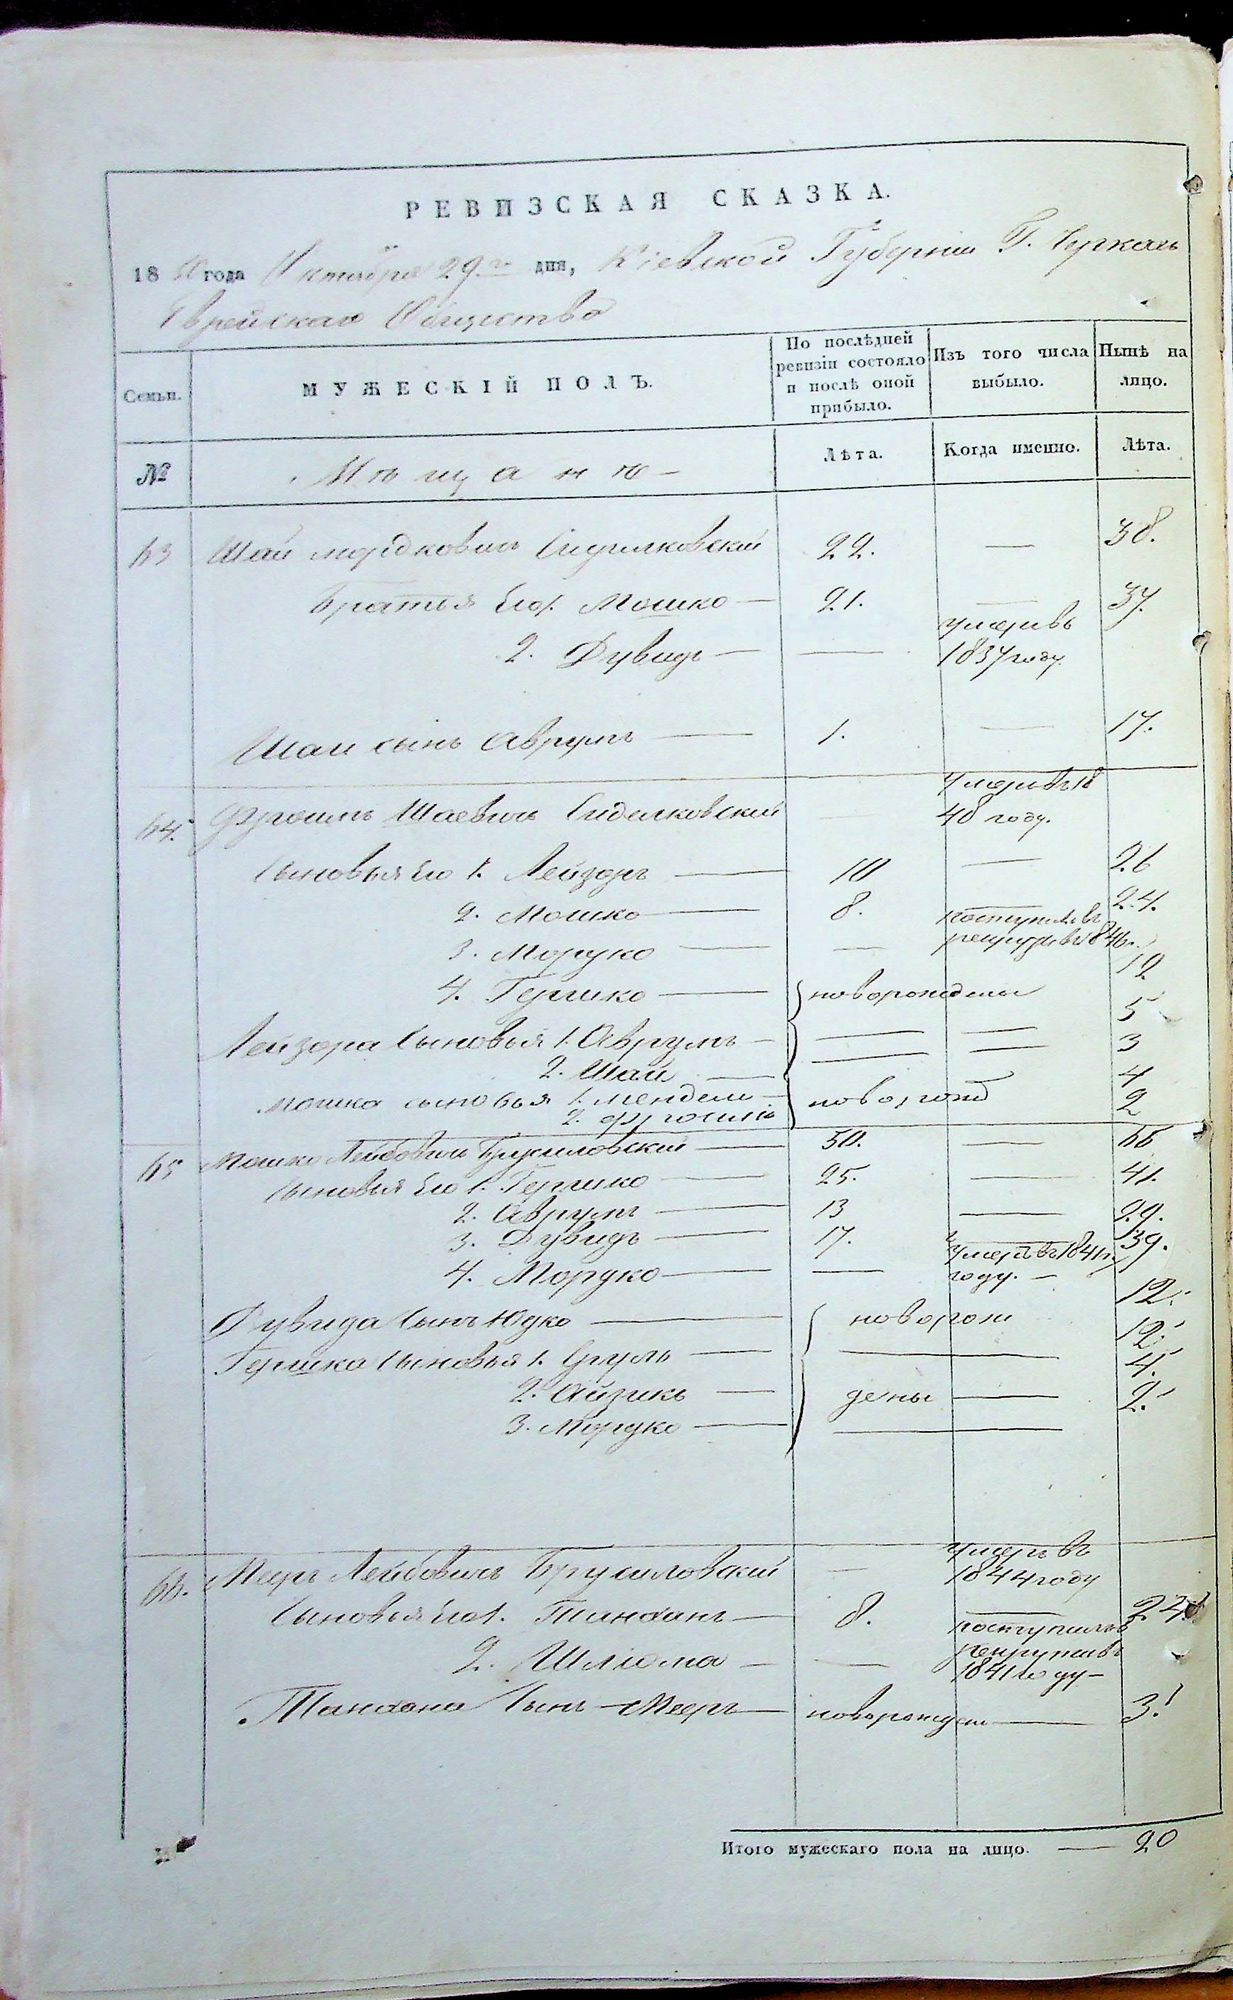 РЕВИЗСКАЯ СКАЗКА.
18 50 года Октября 29го дня, Кіевской Губерніи Г. Черкасъ
Еврейскаго Общества
Семьи.
МУЖЕСКІЙ ПОЛЪ.
По послѣдней ревизіи состояло и послѣ оной прибыло.
Изъ того числа выбыло.
Нынѣ на лицо.
№ Мѣщане Лѣта. Когда именно. Лѣта.
63 Шай Мордковичъ Сидилковскій 22. — 38.
Братья Его 1. Мошко — 21. — 37.
умеръ въ
2. Дувидъ — — 1837 году.
Шаи сынъ Аврумъ — 1. — 17.
умеръ въ 18
64. Фроимъ Шаевичъ Сидилковскій — 48 году.
Сыновья Его 1. Лейзоръ — 10 — 26
2. Мошко — 8. 24.
поступилъ въ
3. Мордко — — рекруты въ 1846 г.
4. Гершко — новорожденъ 12
Лейзора Сыновья 1. Аврумъ — — — 5
2. Шай — — — 3
Мошка сыновья 1. Мендель — новорожд 4
2. Фроимъ 2
65 Мошко Лейбовичъ Брусиловскій — 50. — 66
Сыновья Его 1. Гершко — 25. — 41.
2. Аврумъ — 13 — 29.
3. Дувидъ — 17. 39.
умеръ въ 1841м
4. Мордко — — году. —
Дувида Сынъ Юдко — новорож 12.
Гершка Сыновья 1. Сруль — — 12.
2. Айзикъ — дены — 4.
3. Мордко — — 2.
умеръ въ
66. Мееръ Лейбовичъ Брусиловскій — 1844 году
Сыновья Его 1. Танхонъ — 8. — 24.
поступилъ в
2. Шліома — — рекруты въ
1841 году —
Танхона Сынъ Мееръ — новорожден — 3.
Итого мужескаго пола на лицо. — 20